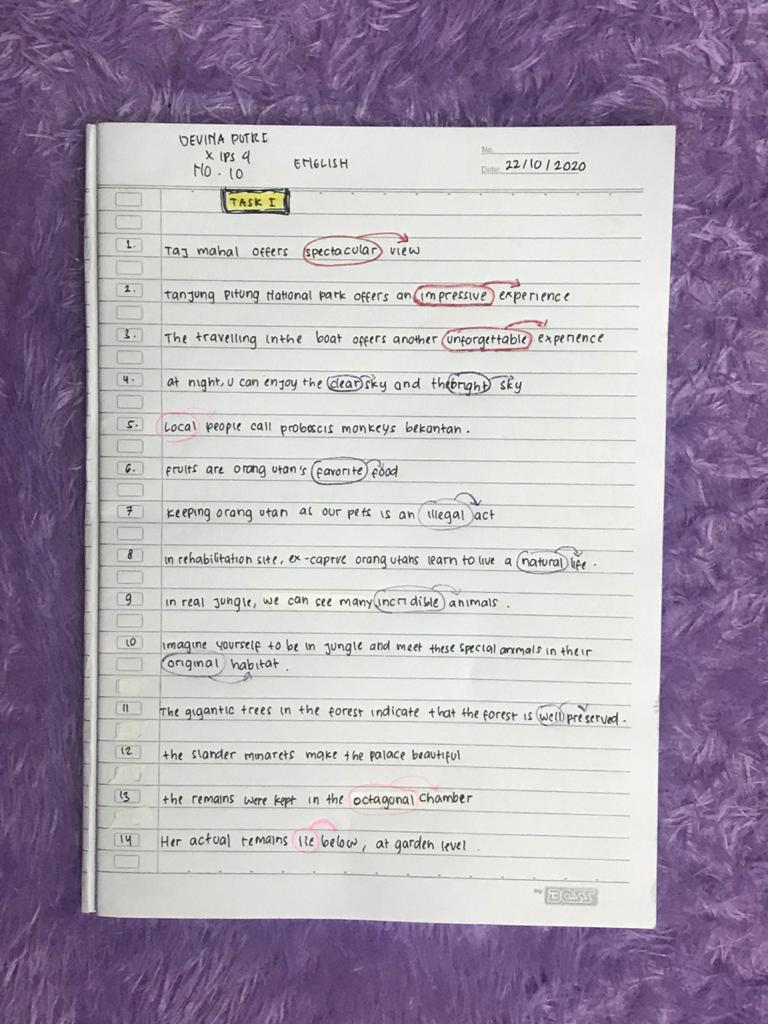 DEVINA PUTRI
X IPS 4
NO. 10
ENGLISH
No.
Date: 22/10/2020
TASK I
1. Taj mahal offers spectacular view
2. Tanjung Pitung National Park offers an impressive experience
3. The travelling inthe boat offers another unforgettable experience
4. at night, u can enjoy the clear sky and the bright sky
5. Local people call proboscis monkeys bekantan.
6. fruits are orang utan's favorite food
7 keeping orang utan as our pets is an illegal act
8 in rehabilitation site, ex-captive orang utans learn to live a natural life.
9 in real jungle, we can see many incredible animals.
10 imagine yourself to be in jungle and meet these special animals in their
original habitat.
11 The gigantic trees in the forest indicate that the forest is well preserved.
12 the slander minarets make the palace beautiful
13 the remains were kept in the octagonal chamber
14 Her actual remains lie below, at garden level.
by BOSS